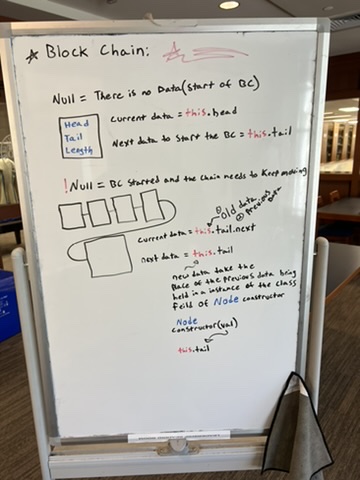 Block Chain:
Null = There is no Data (start of BC)
Head
Tail
Length
current data = this.head
Next data to start the BC = this.tail
!Null = BC started and the chain needs to keep moving
① Old data
② Previous Data
current data = this.tail.next
next data = this.tail
new data take the
place of the previous data being
held in a instance of the class
feild of Node constructor
Node
constructor(val)
this.tail